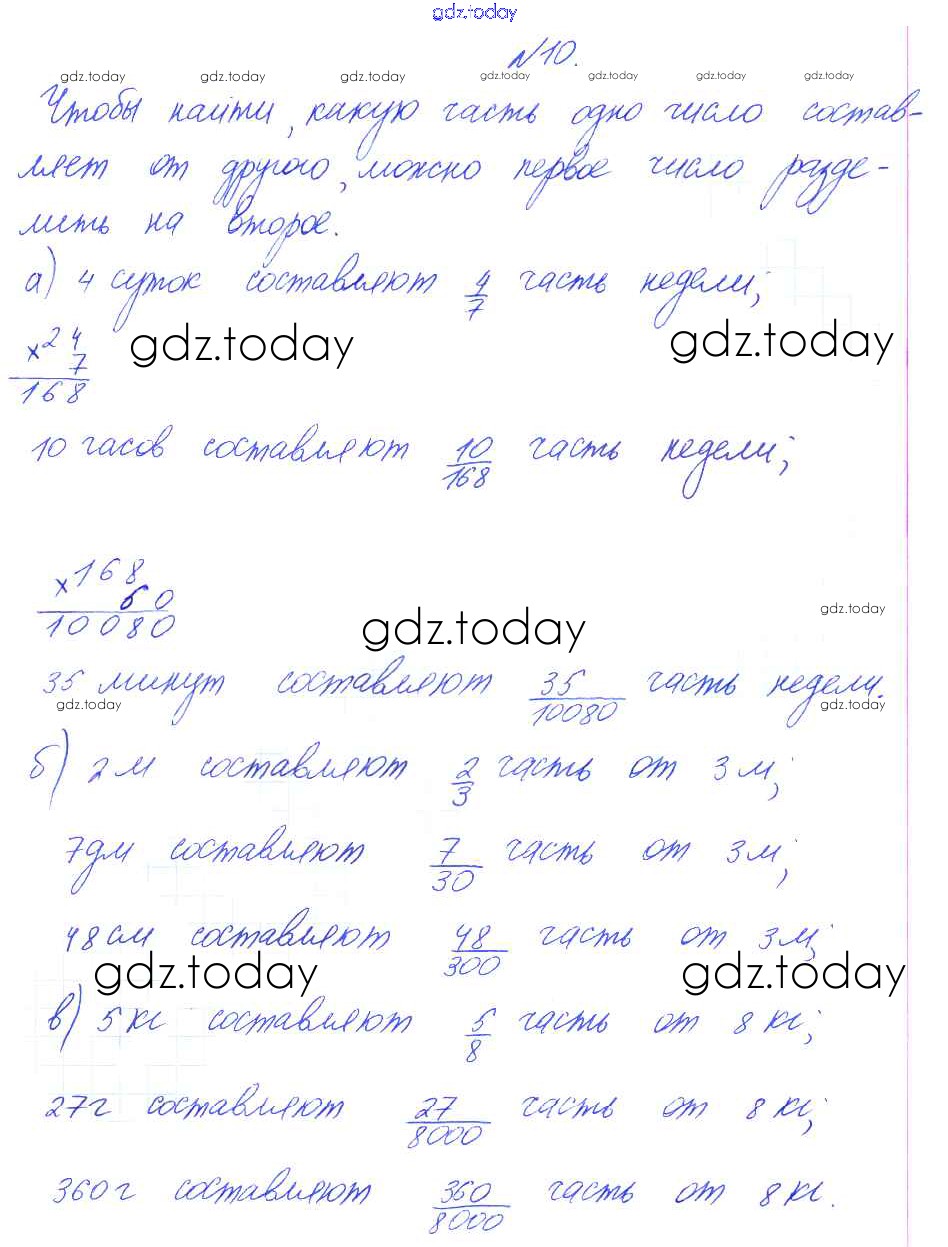 gdz.today
№10.
gdz.today gdz.today gdz.today gdz.today gdz.today gdz.today gdz.today
Чтобы найти, какую часть одно число состав-
ляет от другого, можно первое число разде-
лить на второе.
а) 4 суток составляют 4/7 часть недели;
gdz.today gdz.today
× 24
7
168
10 часов составляют 10/168 часть недели;
× 168
60
10080
gdz.today
gdz.today
35 минут составляют 35/10080 часть недели.
gdz.today gdz.today
б) 2 м составляют 2/3 часть от 3 м;
7 дм составляют 7/30 часть от 3 м;
48 см составляют 48/300 часть от 3 м;
gdz.today gdz.today
в) 5 кг составляют 5/8 часть от 8 кг;
27 г составляют 27/8000 часть от 8 кг;
360 г составляют 360/8000 часть от 8 кг.